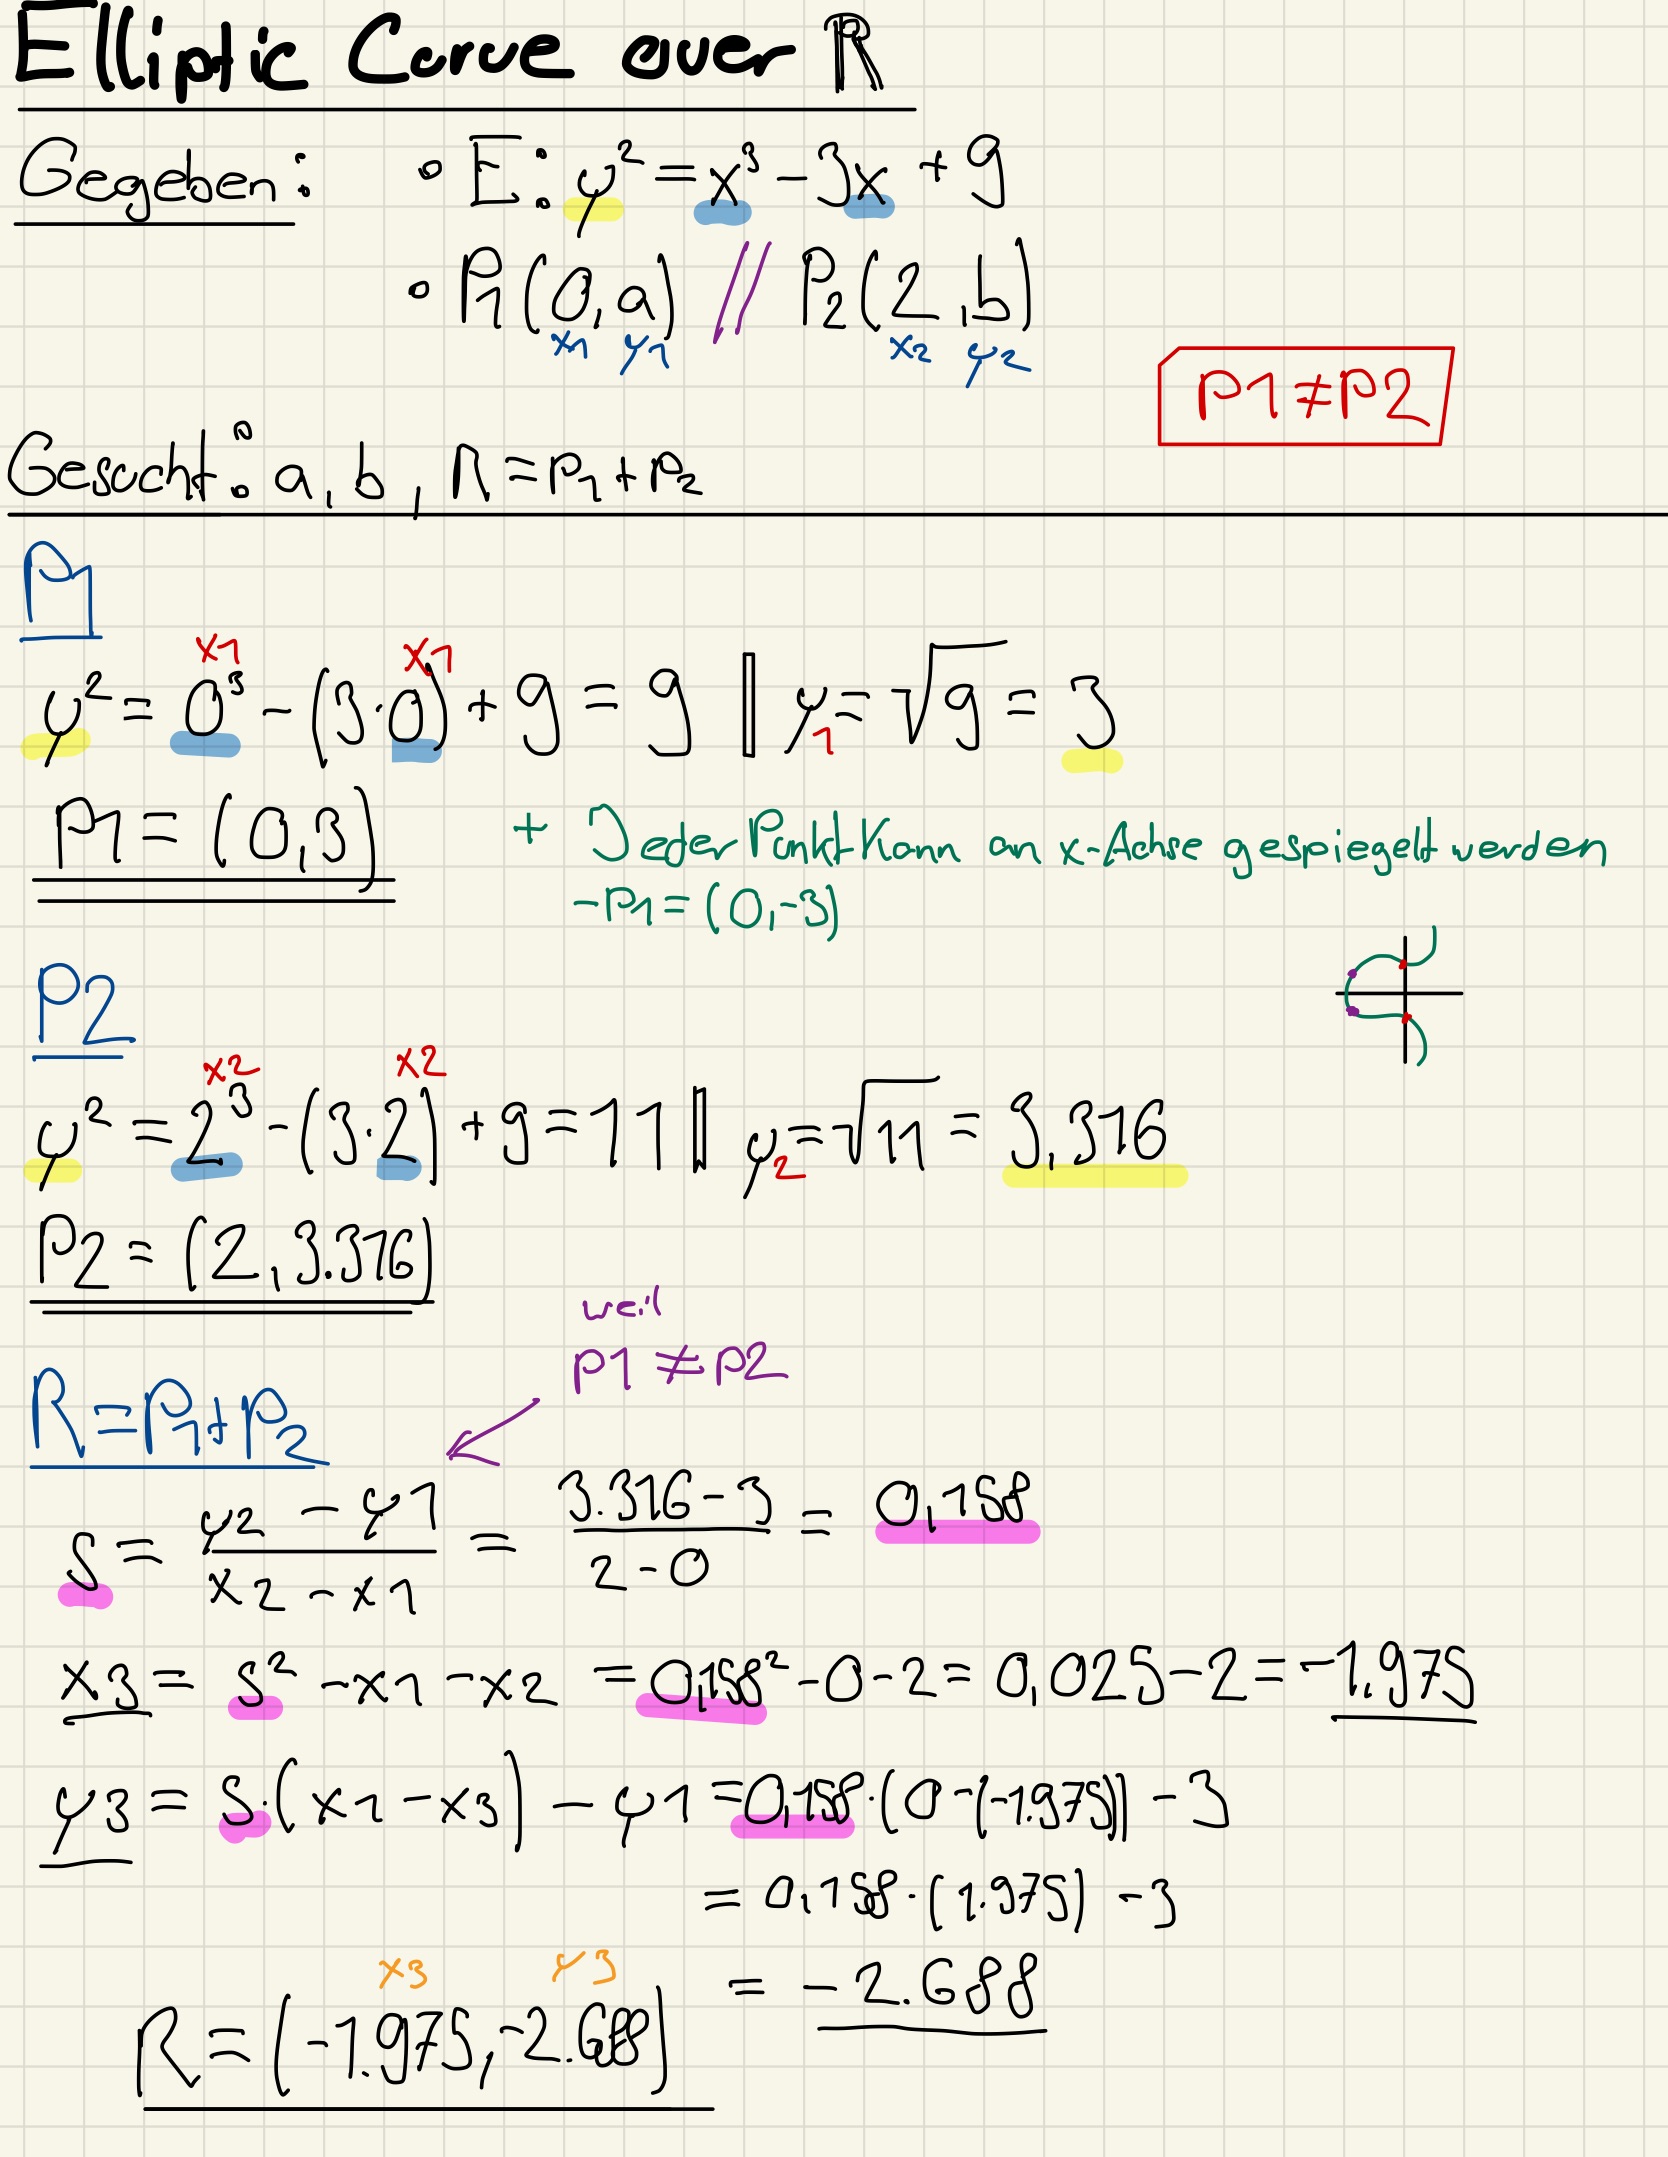 Elliptic Curve over ℝ
Gegeben: • E: y² = x³ - 3x + 9
• P1(0,a) // P2(2,b)
x1 y1 x2 y2
P1 ≠ P2
Gesucht: a, b, R = P1 + P2
P1
x1 x1
y² = 0³ - (3·0) + 9 = 9 || y1 = √9 = 3
P1 = (0,3) + Jeder Punkt Kann an x-Achse gespiegelt werden
-P1 = (0,-3)
P2
x2 x2
y² = 2³ - (3·2) + 9 = 11 || y2 = √11 = 3,316
P2 = (2, 3.316)
weil
P1 ≠ P2
R = P1 + P2
s = (y2 - y1)/(x2 - x1) = (3.316 - 3)/(2 - 0) = 0,158
x3 = s² - x1 - x2 = 0,158² - 0 - 2 = 0,025 - 2 = -1.975
y3 = s·(x1 - x3) - y1 = 0,158·(0 - (-1.975)) - 3
= 0,158·(1.975) - 3
x3 y3
= -2.688
R = (-1.975, -2.688)